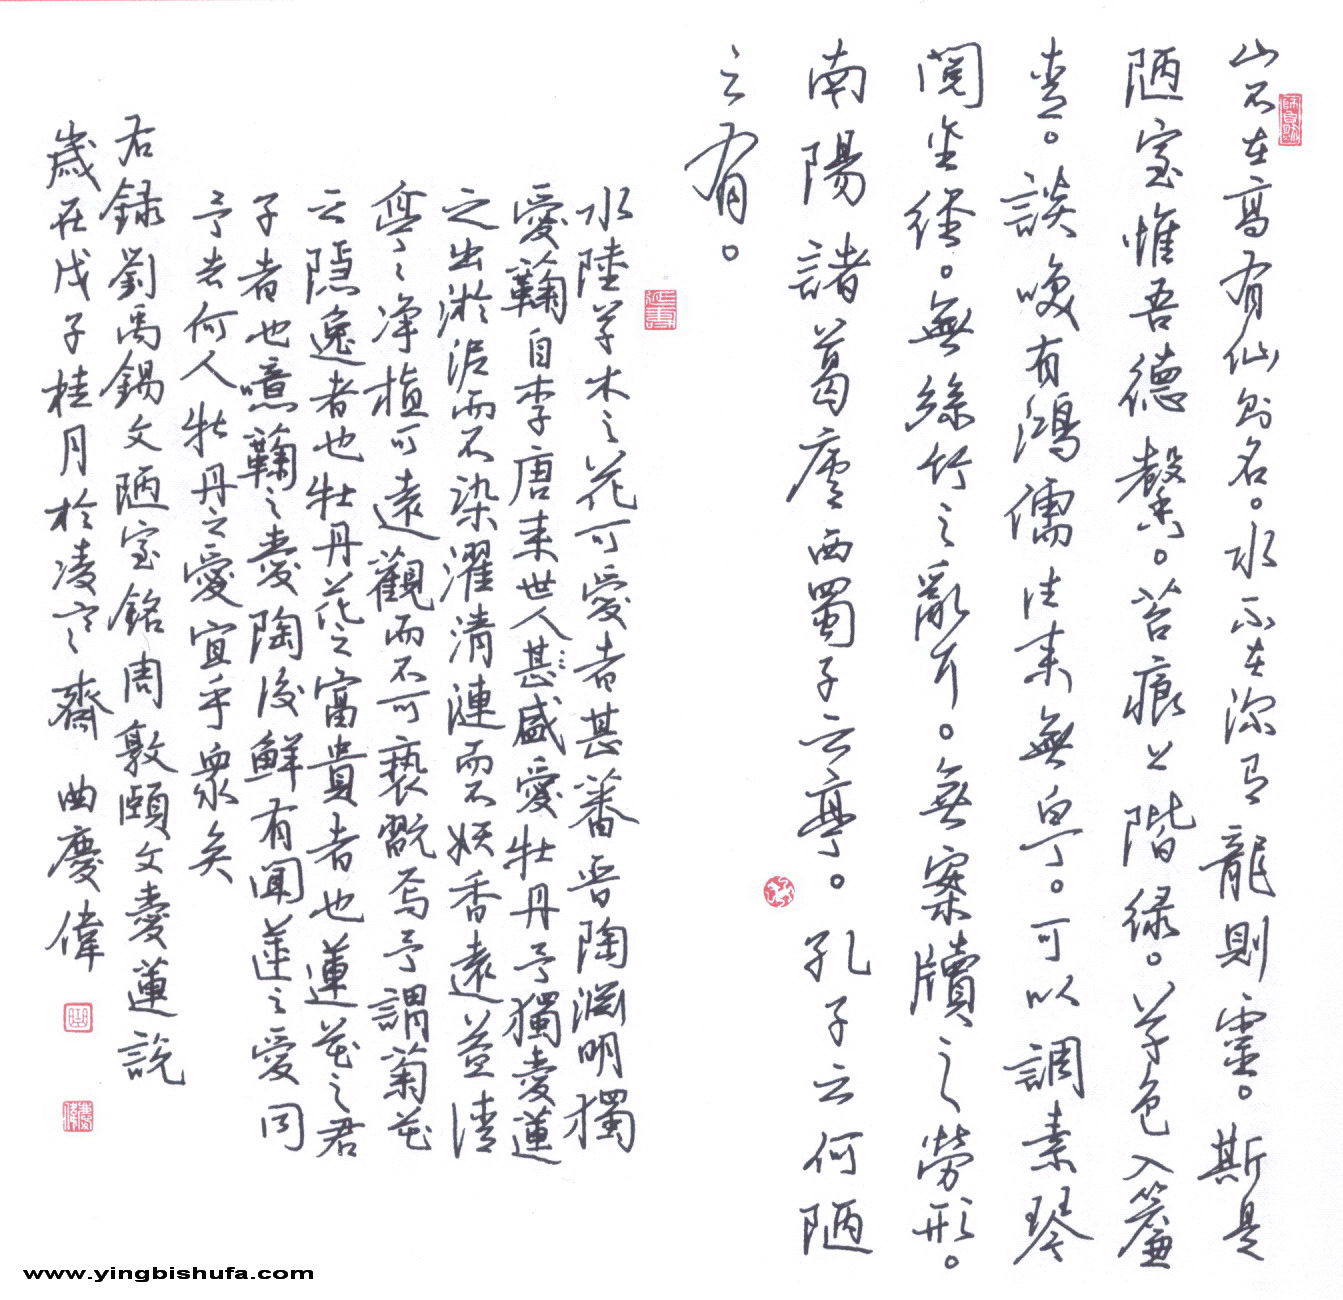 山不在高有仙則名。水不在深有龍則靈。斯是
陋室惟吾德馨。苔痕上階緑。草色入簾
青。談笑有鴻儒往来無白丁。可以調素琴
閲金經。無絲竹之亂耳。無案牘之勞形。
南陽諸葛廬西蜀子云亭。孔子云何陋
之有。
水陸草木之花可愛者甚蕃晉陶淵明獨
愛鞠自李唐来世人甚盛愛牡丹予獨愛蓮
之出淤泥而不染濯清漣而不妖香遠益清
亭亭净植可遠觀而不可褻翫焉予謂菊花
云隠逸者也牡丹花之富貴者也蓮花之君
子者也噫鞠之愛陶後鮮有聞蓮之愛同
予者何人牡丹之愛宜乎眾矣
右録劉禹錫文陋室銘周敦頤文愛蓮説
歲在戊子桂月於凌寒齋 曲慶偉
www.yingbishufa.com